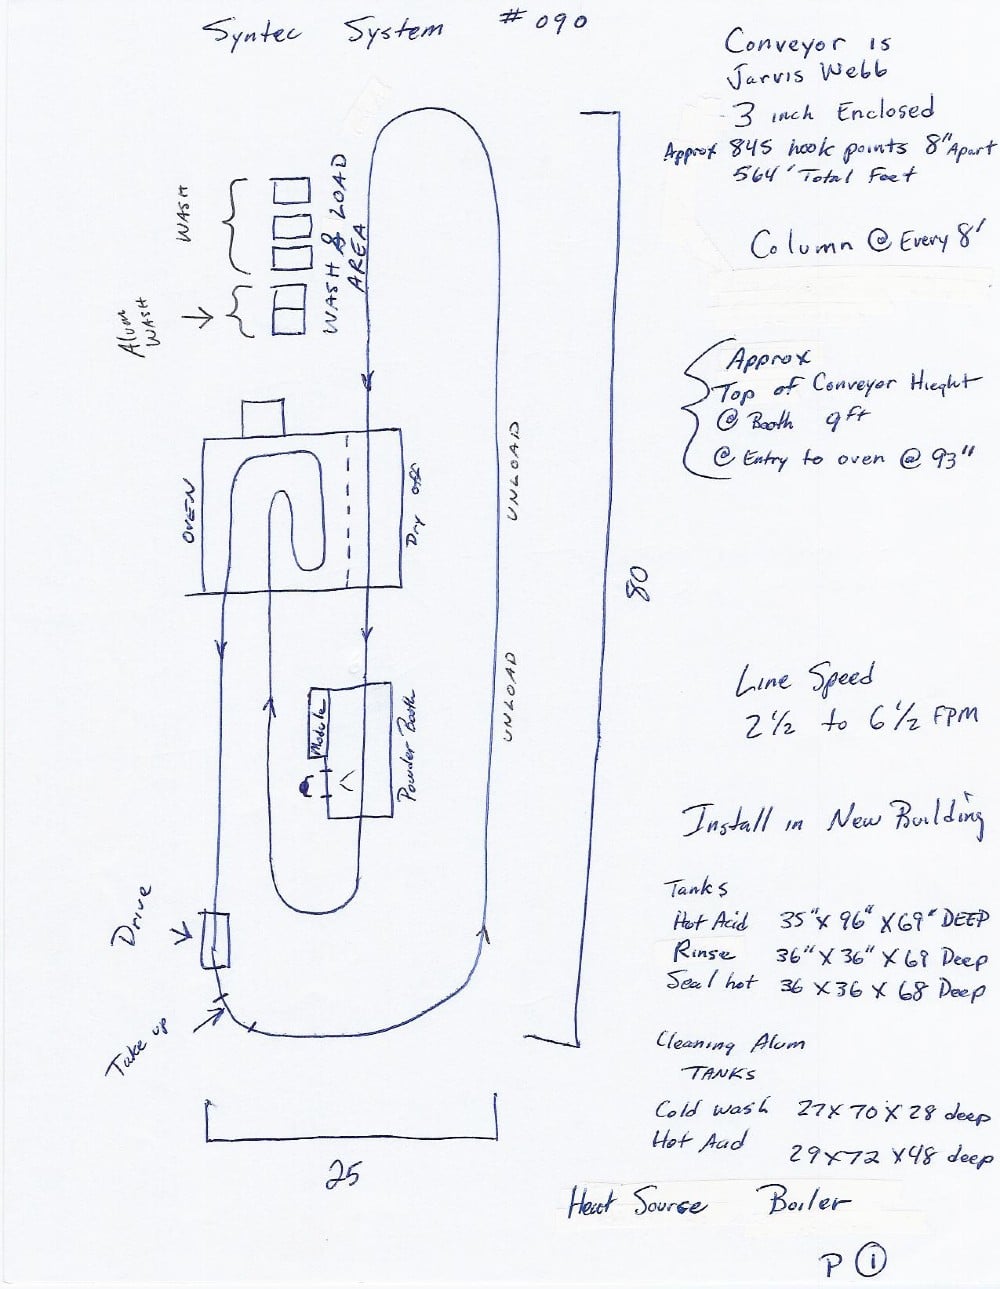 Syntec System #090
Conveyor is
Jarvis Webb
3 inch Enclosed
Approx 845 hook points 8" Apart
564' Total Feet
Column @ Every 8'
Approx
Top of Conveyor Hieght
@ Booth 9ft
@ Entry to oven @ 93"
WASH
Alum
WASH
WASH & LOAD
AREA
OVEN
Dry off
UNLOAD
UNLOAD
80
Module
Powder Booth
Line Speed
2 1/2 to 6 1/2 FPM
Install in New Building
Drive
Take up
Tanks
Hot Acid 35" X 96" X 69" DEEP
Rinse 36" X 36" X 69 Deep
Seal hot 36 X 36 X 68 Deep
Cleaning Alum
TANKS
Cold wash 27 X 70 X 28 deep
Hot Acid 29 X 72 X 48 deep
25
Heat Sourse Boiler
P 1